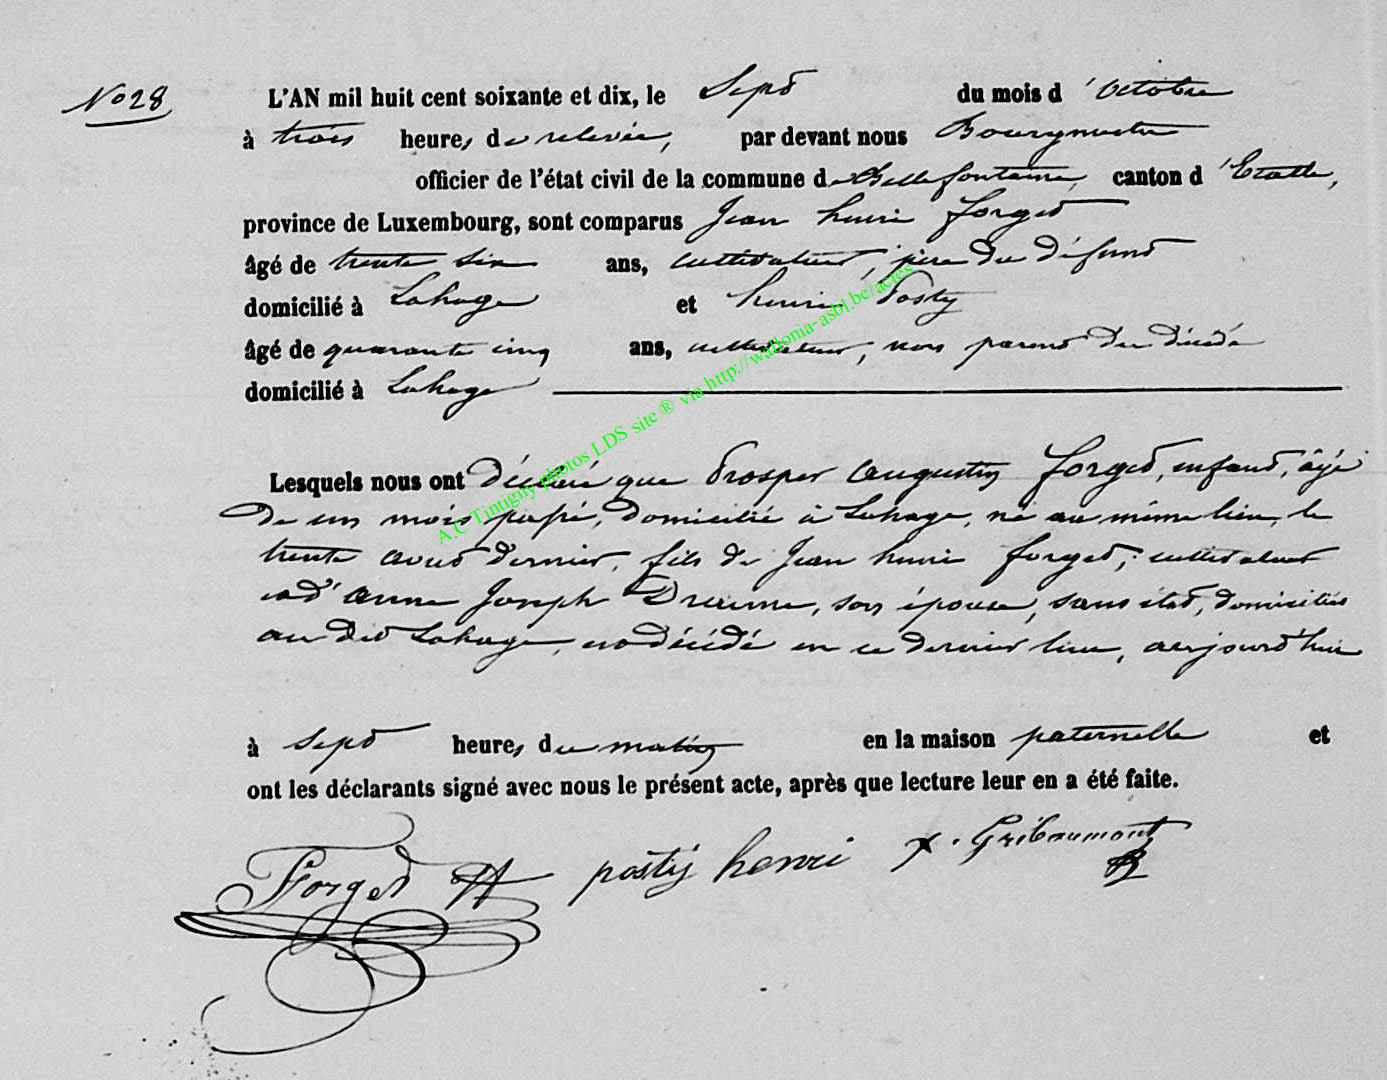 No 28
L'AN mil huit cent soixante et dix, le Sept du mois d'octobre
à trois heures de relevée, par devant nous Bourgmestre
officier de l'état civil de la commune de Bellefontaine, canton d'Etalle,
province de Luxembourg, sont comparus Jean henri forget
âgé de trente six ans, cultivateur, père du défunt
domicilié à Lahage et henri Posty
âgé de quarante cinq ans, cultivateur, non parent du décédé
domicilié à Lahage
Lesquels nous ont déclaré que Prosper Augustin forget, enfant, âgé
de un mois passé, domicilié à Lahage, né au même lieu, le
trente aout dernier, fils de Jean henri forget, cultivateur
et d'anne Joseph Dreume, son épouse, sans état, domiciliés
au dit Lahage, est décédé en ce dernier lieu, aujourd'hui
à sept heures du matin en la maison paternelle et
ont les déclarants signé avec nous le présent acte, après que lecture leur en a été faite.
Forget JH postij henri x. Gribaumont
A.C Tintigny photos LDS site ® via http://wallonia-asbl.be/actes